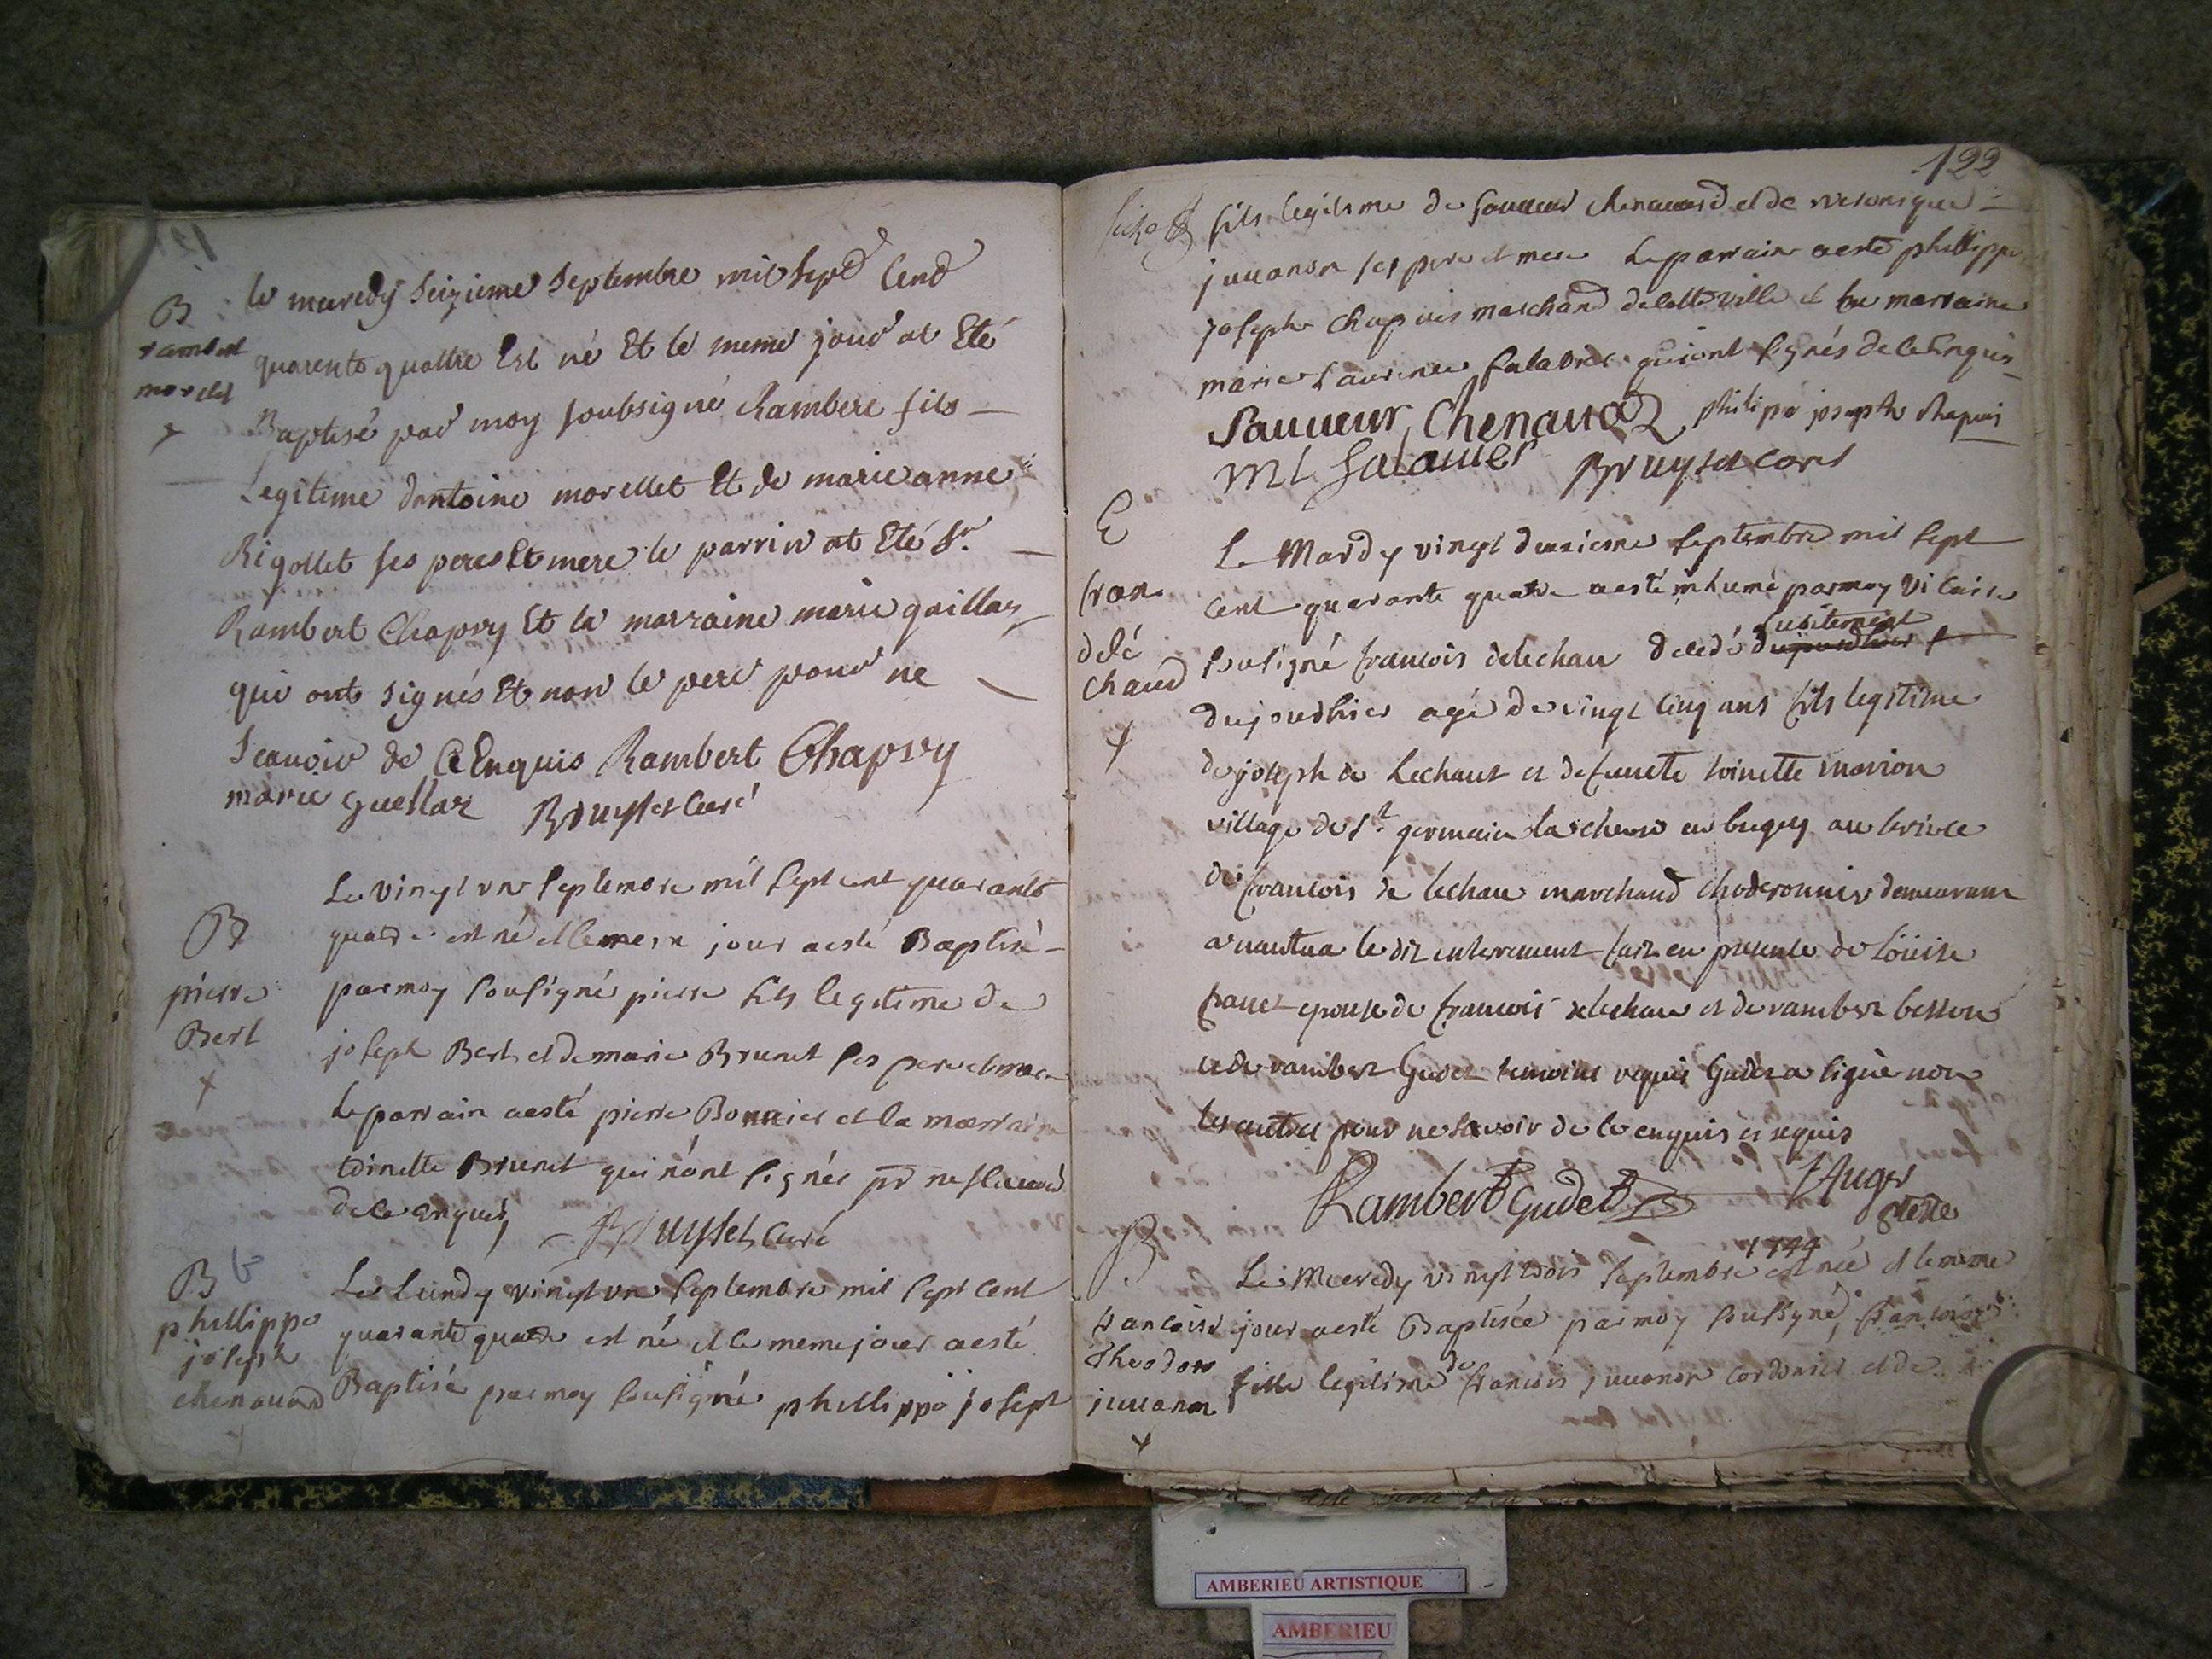 B
rambert
morelet
le mecredy seizieme septembre mil sept Cend
quarente quattre Est né Et le meme jour at Eté
Baptisé par moy soubsigné Rambert fils
Legitime dantoine morellet Et de marie anne
Rigollet ses peres Et mere le parrin at Eté Sr.
Rambert Chapuy Et la marraine marie gaillar
qui ont signés Et non le pere pour ne
Scauoir de Ce Enquis Rambert Chapuy
marie guellar Bruyset Curé
B
pierre
Bert
Le vingt un septembre mil sept cent quarante
quatre est né et le meme jour a esté Baptisé
par moy sousigné pierre fils legitime de
joseph Bert et de marie Brunet ses pere et mere
Le parrain a esté pierre Bonnier et la marraine
toinette Brunet qui n'ont signés pr ne scauoir
de ce enquis Bruyset Curé
B
phillippe
joseph
chenauard
Le Lundy vingt un septembre mil sept cent
quarante quatre est né et le meme jour a esté
Baptisé par moy sousigné phillippe joseph
122
fils legitime de sauueur chenauard et de veronique
juuanon ses pere et mere Le parrain a esté phillippe
joseph chapuis marchand de cette ville et la marraine
marie Laurence salauier qui ont signés de ce Enquis
Sauueur Chenauard philipe joseph Chapuis
M L Salauier Bruyset Curé
E
fran
delé
chaud
Le Mardy vingt deuxieme septembre mil sept
cent quarante quatre a esté inhumé par moy vicaire
sousigné francois delechau decedé subitement
du jourdhier agé de vingt cinq ans fils legitime
de joseph de Lechaut et de functe toinette marion
village de St. germain la cheur en bugey au service
de francois de lechau marchand choderonnier demeurant
a nantua le dit enterrement fait en presence de Loüise
epouse de francois delechau et de rambert besson
et de rambert Gudet temoins requis Gudet a signé non
les autres pour ne scavoir de ce enquis et requis
Rambert Gudet Auger
B
francoise
juuanon
Le Mecredy vingt trois septembre 1744 est née et le meme
jour a esté Baptisée par moy soussyné, francoise
fille legitime de francois juuanon cordonier et de
AMBERIEU ARTISTIQUE
AMBERIEU